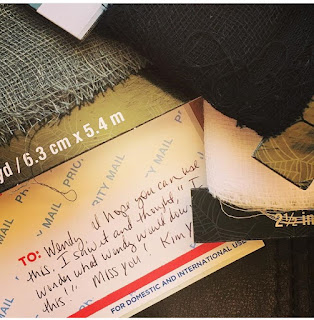 yd / 6.3 cm x 5.4 m
PRIORITY MAIL
TO: Wendy, I hope you can use
this. I saw it and thought, "I
wonder what Wendy would do w/
this!". Miss you! Kim
2½ in
FOR DOMESTIC AND INTERNATIONAL USE